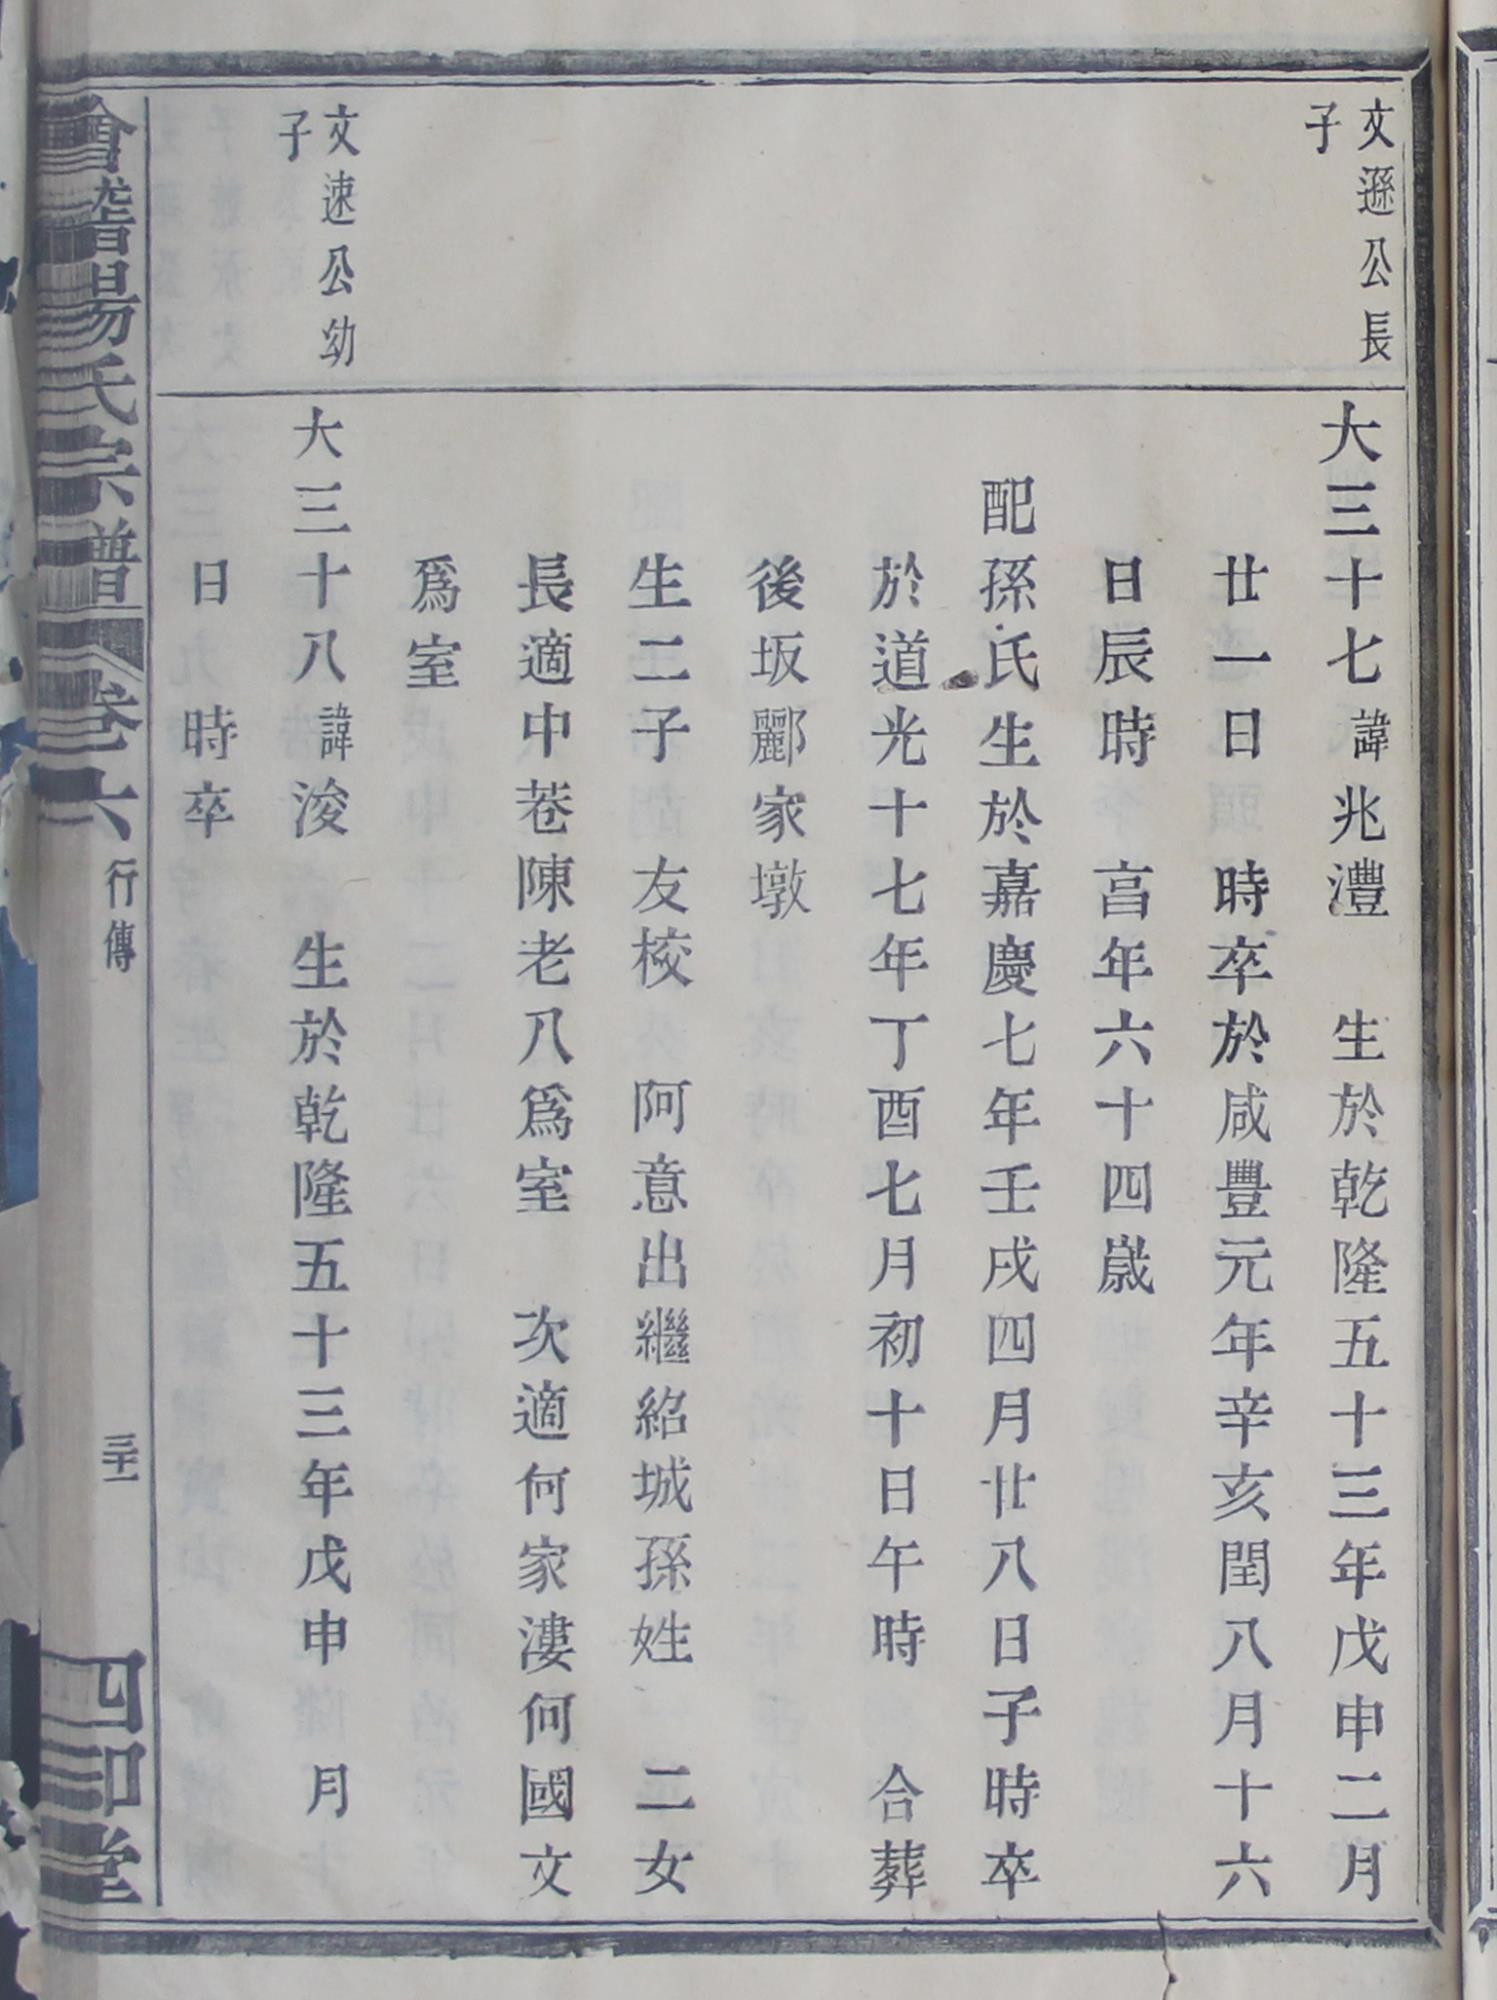 文遜公長
子
大三十七諱兆灃　生於乾隆五十三年戊申二月
廿一日　時卒於咸豐元年辛亥閏八月十六
日辰時　亯年六十四歲
配孫氏生於嘉慶七年壬戌四月廿八日子時卒
於道光十七年丁酉七月初十日午時　合葬
後坂酈家墩
生二子　友校　阿意出繼紹城孫姓　二女
長適中巷陳老八爲室　次適何家漊何國文
爲室
文速公幼
子
大三十八諱浚　生於乾隆五十三年戊申　月
日　時卒
會稽楊氏宗譜　卷六　行傳　三十一　四知堂